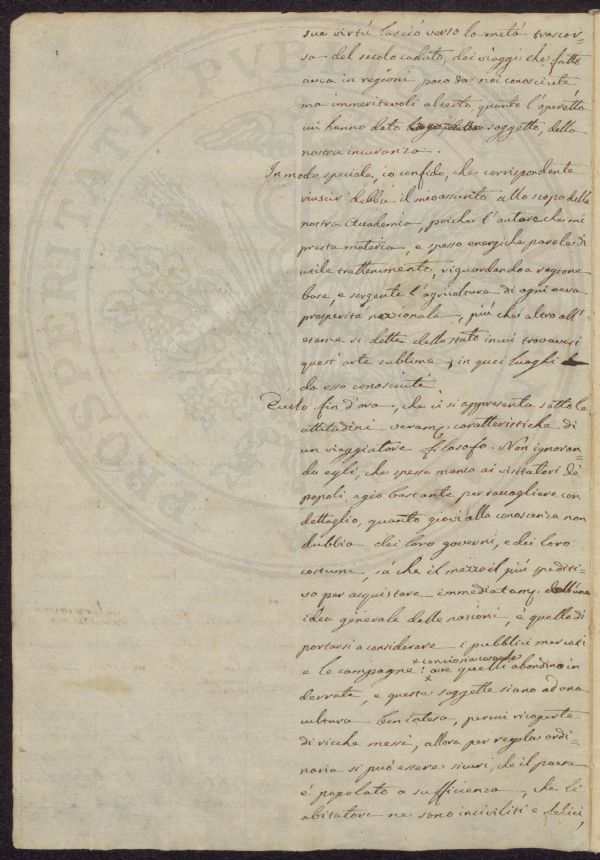 sue virtù lasciò verso la metà trascor-
sa del secolo caduto, dei viaggi che fatto
avea in regioni poco da noi conosciute
ma immeritevoli al certo, quanto l'operetta
cui hanno dato soggetto, della
nostra incuranza.
In modo speciale, io confido, che corrispondente
riuscir debba il mio assunto allo scopo della
nostra Accademia, poiché l'autore che mi
presta materia, e spesso energiche parole di
utile trattenimento, riguardando a ragione
base, e sorgente l'agricoltura di ogni vera
prosperità nazionale, più che altro all'
esame si dette dello stato in cui trovavasi
quest'arte sublime, in quei luoghi
da esso conosciuti
Tosto fin d'ora, che ci si appresenta sotto le
attitudini veramᵉ. caratteristiche di
un viaggiatore filosofo. Non ignoran-
do egli, che spesso manca ai visitatori de'
popoli, agio bastante per raccogliere con
dettaglio, quanto giovi alla conoscenza non
dubbia dei loro governi, e dei loro
costumi, sa che il mezzo il più spediti-
vo per acquistare immediatamᵉ. dell'una
idea generale delle nazioni, è quello di
portarsi a considerare i pubblici mercati
e le campagne: conciosiacosaché
ove quelli abondino in
derrate, e queste soggette siano ad una
cultura ben intesa, percui ricoperte
di ricche messi, allora per regola ordi-
naria si può essere sicuri, che il paese
è popolato a sufficienza, che li
abitatori ne sono inciviliti e felici,
PROSPERITATI PUBL